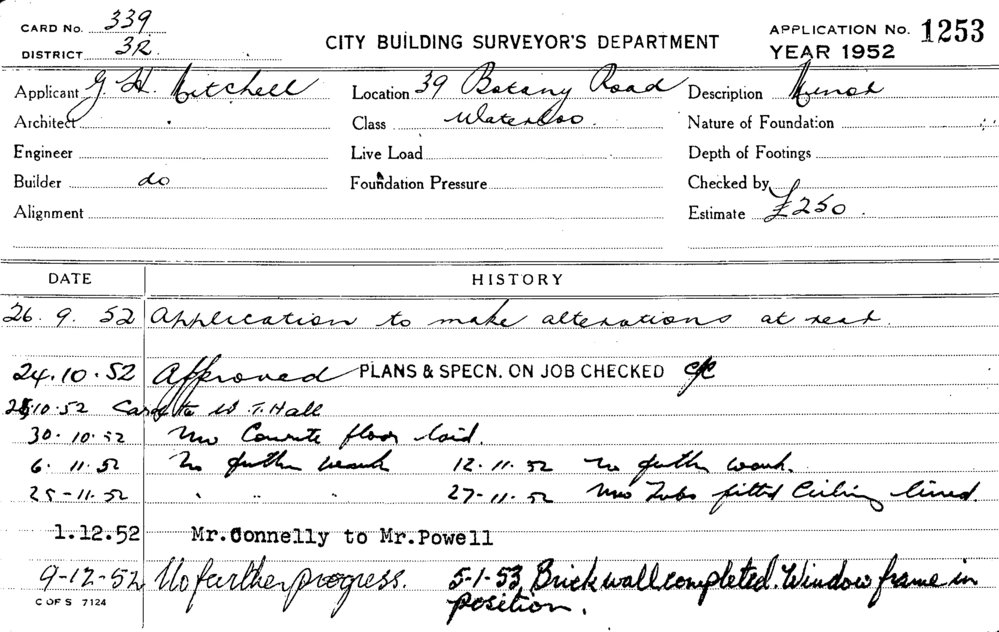 CARD No. 339
DISTRICT 3R.
CITY BUILDING SURVEYOR'S DEPARTMENT
APPLICATION No. 1253
YEAR 1952
Applicant G H. Mitchell
Location 39 Botany Road
Description Minor
Architect
Class Waterloo.
Nature of Foundation
Engineer
Live Load
Depth of Footings
Builder do
Foundation Pressure
Checked by
Alignment
Estimate £250.
DATE HISTORY
26. 9. 52 Application to make alterations at rear.
24.10.52 Approved PLANS & SPECN. ON JOB CHECKED
10.52 Card to W.T.Hall
30.10.52 New Concrete floor laid.
6.11.52 No further work 12.11.52 no further work.
25-11.52 " " " 27-11.52 New Tubs fitted Ceiling lined.
1.12.52 Mr.Connelly to Mr.Powell
9-12-52 No further progress. 5-1-53 Brick wall completed. Window frame in
position.
C OF S 7124